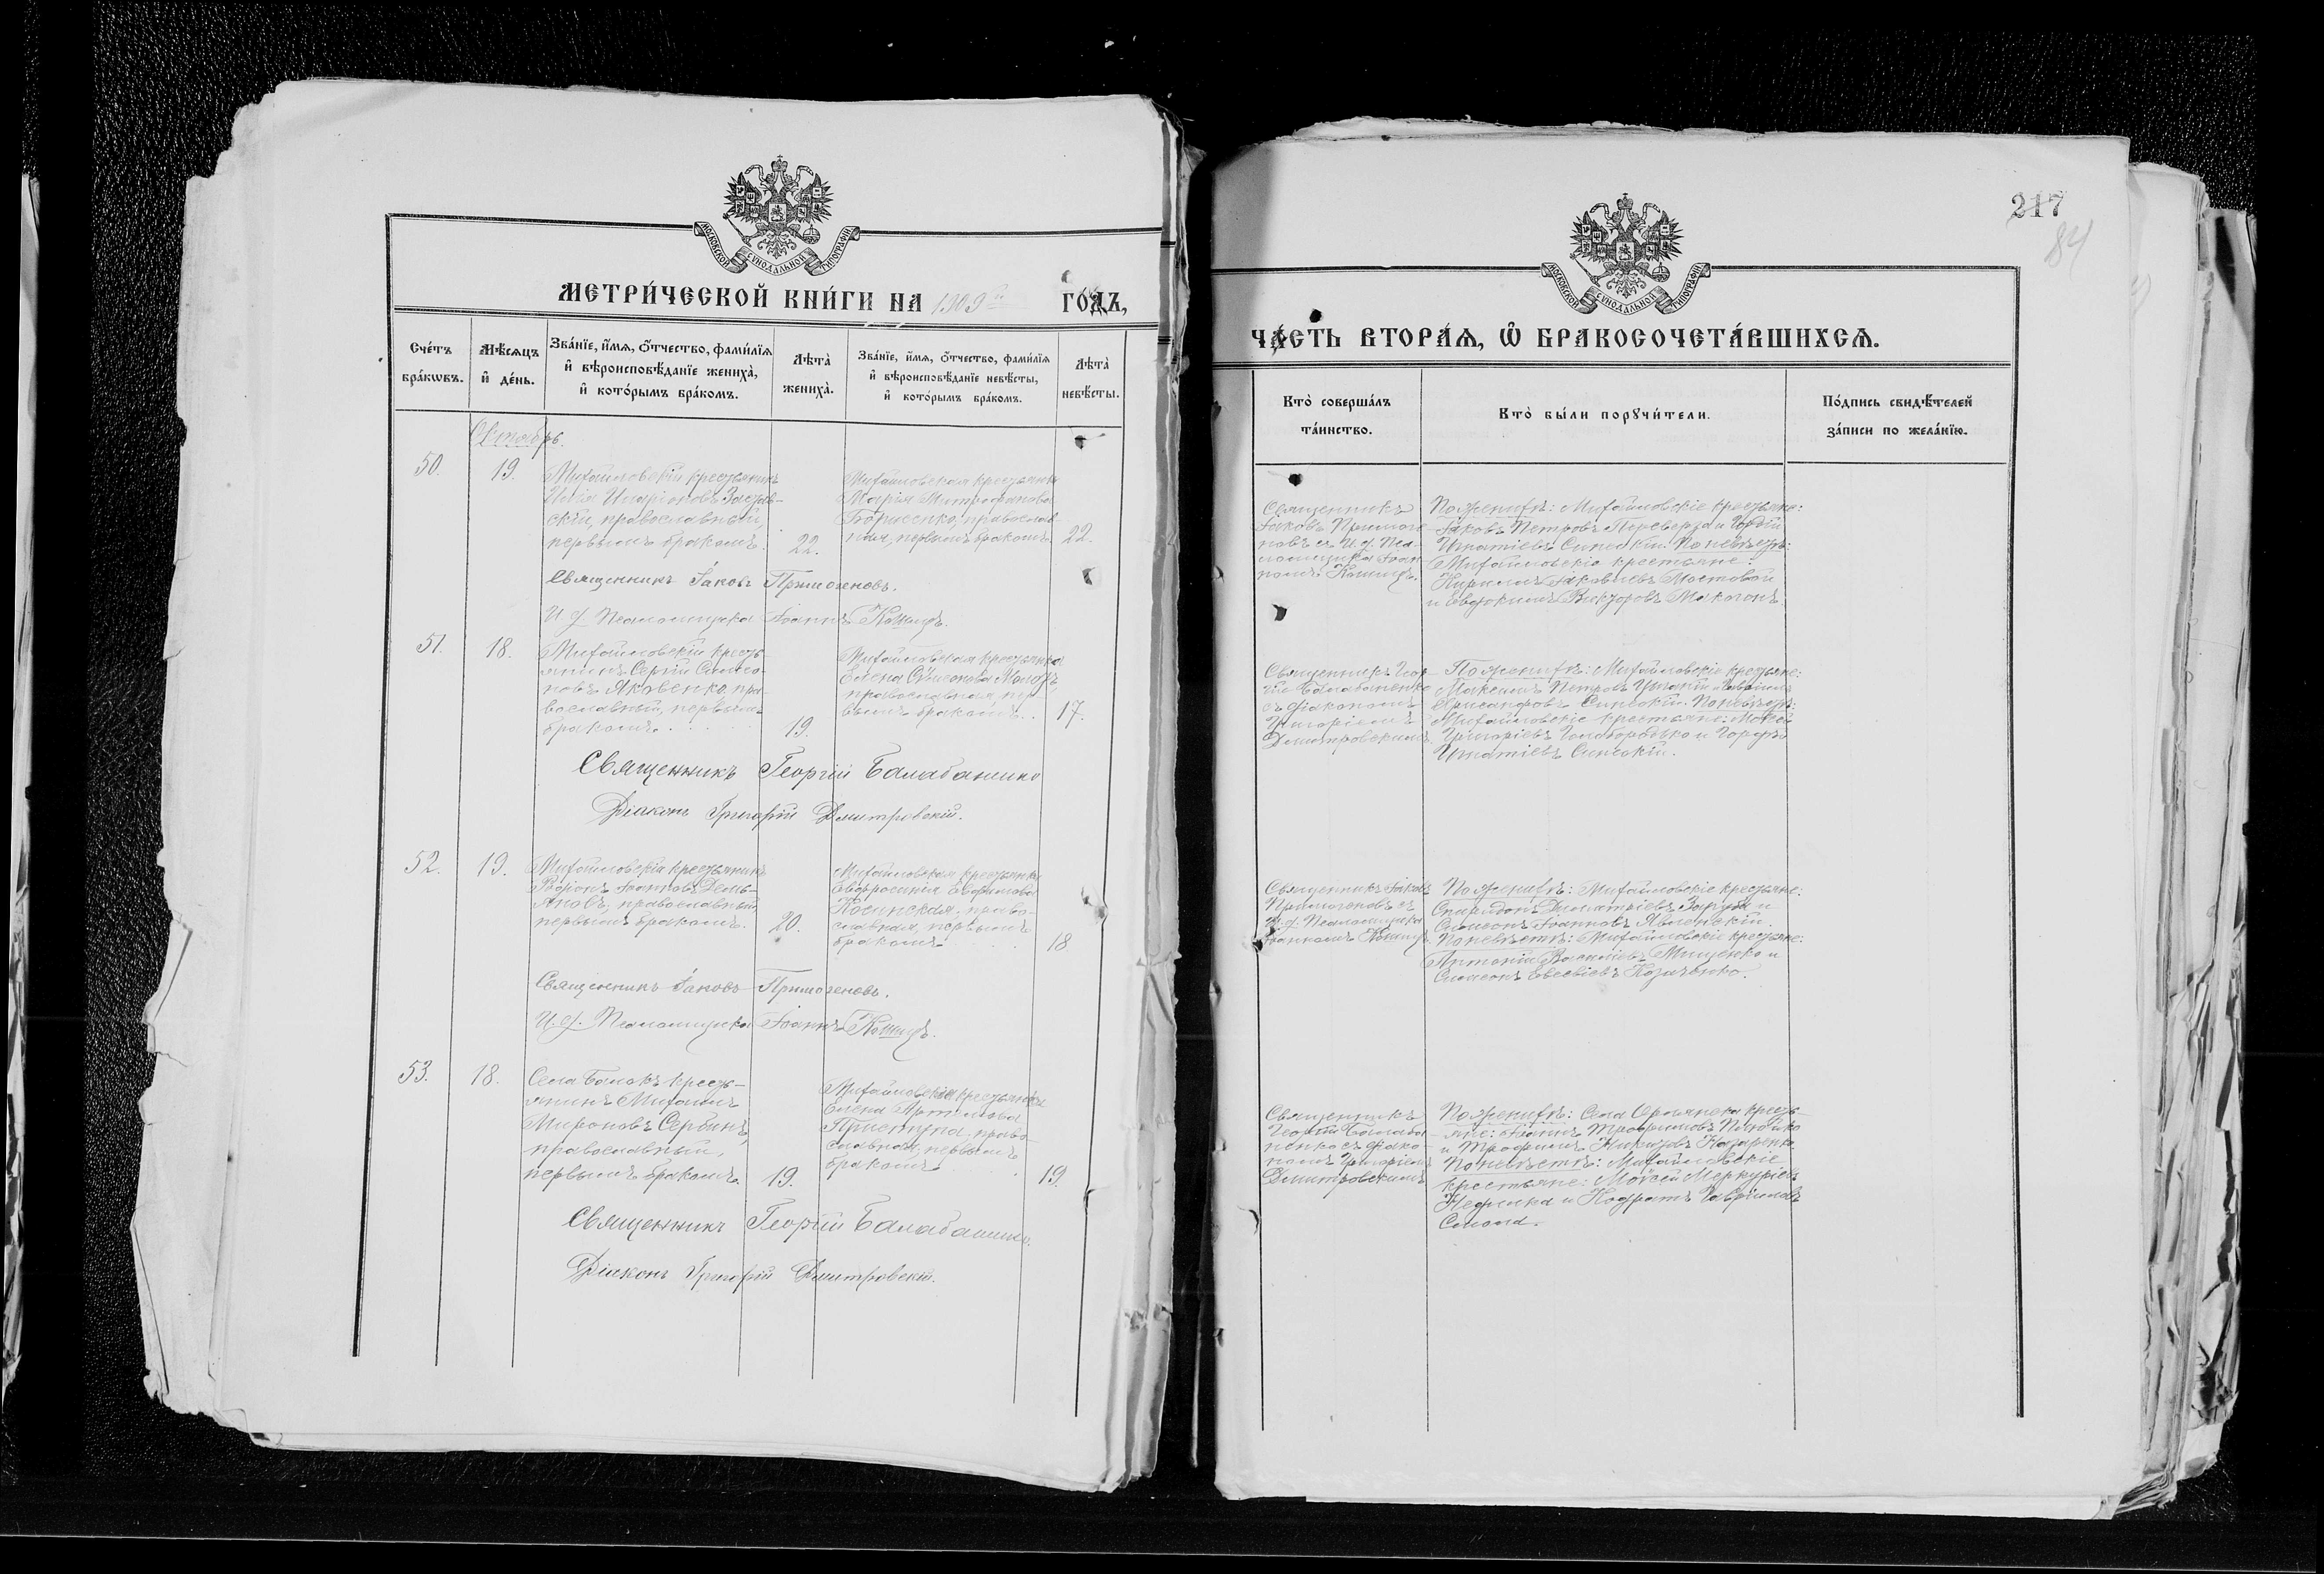 МОСКОВСКОЙ СѴНОДАЛЬНОЙ ТИПОГРАФІИ
МЕТРИ́ЧЕСКОЙ КНИ́ГИ НА 1909 ГО́ДЪ,
Сче́тъ бра́кѡвъ.
Мѣ́сѧцъ и҆ де́нь.
Зва́нїе, и҆́мѧ, ѻ҆́тчество, фами́лїѧ
и҆ вѣроисповѣ́данїе жениха̀,
и҆ кото́рымъ бра́комъ.
Лѣ̑та жениха̀.
Зва́нїе, и҆́мѧ, ѻ҆́тчество, фами́лїѧ
и҆ вѣроисповѣ́данїе невѣ́сты,
и҆ кото́рымъ бра́комъ.
Лѣ̑та невѣ́сты.
Октябрь.
50. 19.
Михайловскій крестьянинъ
Иларіоновъ
скій, православный,
первымъ бракомъ.
22.
Михайловская крестьянка
Марія Митрофанова
Борисенко, православ-
ная, первымъ бракомъ.
22.
Священникъ Іаковъ Примогеновъ.
И. д. Псаломщика Іоаннъ Кошицъ.
51. 18.
Михайловскій кресть-
янинъ Сергій
новъ Яковенко, пра-
вославный, первымъ
бракомъ.
19.
Михайловская крестьянка
Елена Сѵмеонова
православная, пер-
вымъ бракомъ.
17.
Священникъ Георгій Балабаненко
Діаконъ Григорій Дмитровскій.
52. 19.
Михайловскій крестьянинъ
Родіонъ Іоанновъ Демь-
яновъ, православный,
первымъ бракомъ.
20.
Михайловская крестьянка
Евфросинія Евфимова
православная, первымъ
бракомъ
18
Священникъ Іаковъ Примогеновъ.
И. д. Псаломщика Іоаннъ Кошицъ.
53. 18.
Села кресть-
янинъ Михаилъ
Мироновъ Сербинъ,
православный,
первымъ бракомъ.
19.
Михайловская крестьянка
Елена
право-
славная, первымъ
бракомъ
19.
Священникъ Георгій Балабаненко.
Діаконъ Григорій Дмитровскій.
217
84
МОСКОВСКОЙ СѴНОДАЛЬНОЙ ТИПОГРАФІИ
ЧА́СТЬ ВТОРА́Ѧ, Ѽ БРАКОСОЧЕТА́ВШИХСѦ.
Кто̀ соверша́лъ
та́инство.
Кто̀ бы́ли порꙋчи́тели.
По́дпись свидѣ́телей
за́писи по жела́нїю.
Священникъ
Іаковъ Примоге-
новъ съ И. д. Пса-
ломщика Іоан-
номъ Кошицъ.
По женихѣ: Михайловскіе крестьяне:
Іаковъ Петровъ Переверза и Гордій
Игнатіевъ Синскій. По невѣстѣ:
Михайловскіе крестьяне:
Кириллъ Іаковлевъ Мостовой
и Евдокимъ Викторовъ Макогонъ.
Священникъ Геор-
гій Балабаненко
съ діакономъ
Григоріемъ
Дмитровскимъ.
По женихѣ: Михайловскіе крестьяне:
Максимъ Петровъ и Гавріилъ
По невѣстѣ:
Михайловскіе крестьяне:
Григоріевъ Голобородько и Гордѣй
Игнатіевъ Синскій.
Священникъ Іаковъ
Примогеновъ съ
и. д. Псаломщика
Іоанномъ Кошицъ.
По женихѣ: Михайловскіе крестьяне:
Спиридонъ Димитріевъ Заруба и
Симеонъ Іоанновъ
По невѣстѣ: Михайловскіе крестьяне:
Антоній Василіевъ Мищенко и
Симеонъ Евсевіевъ
Священникъ
Георгій Балаба-
ненко съ діако-
номъ Григоріемъ
Дмитровскимъ
По женихѣ: Села кресть-
яне: Іоаннъ Трофимовъ
и Трофимъ Назаренко.
По невѣстѣ: Михайловскіе
крестьяне: Моѵсей Меркуріевъ
и Кодратъ Гавріиловъ